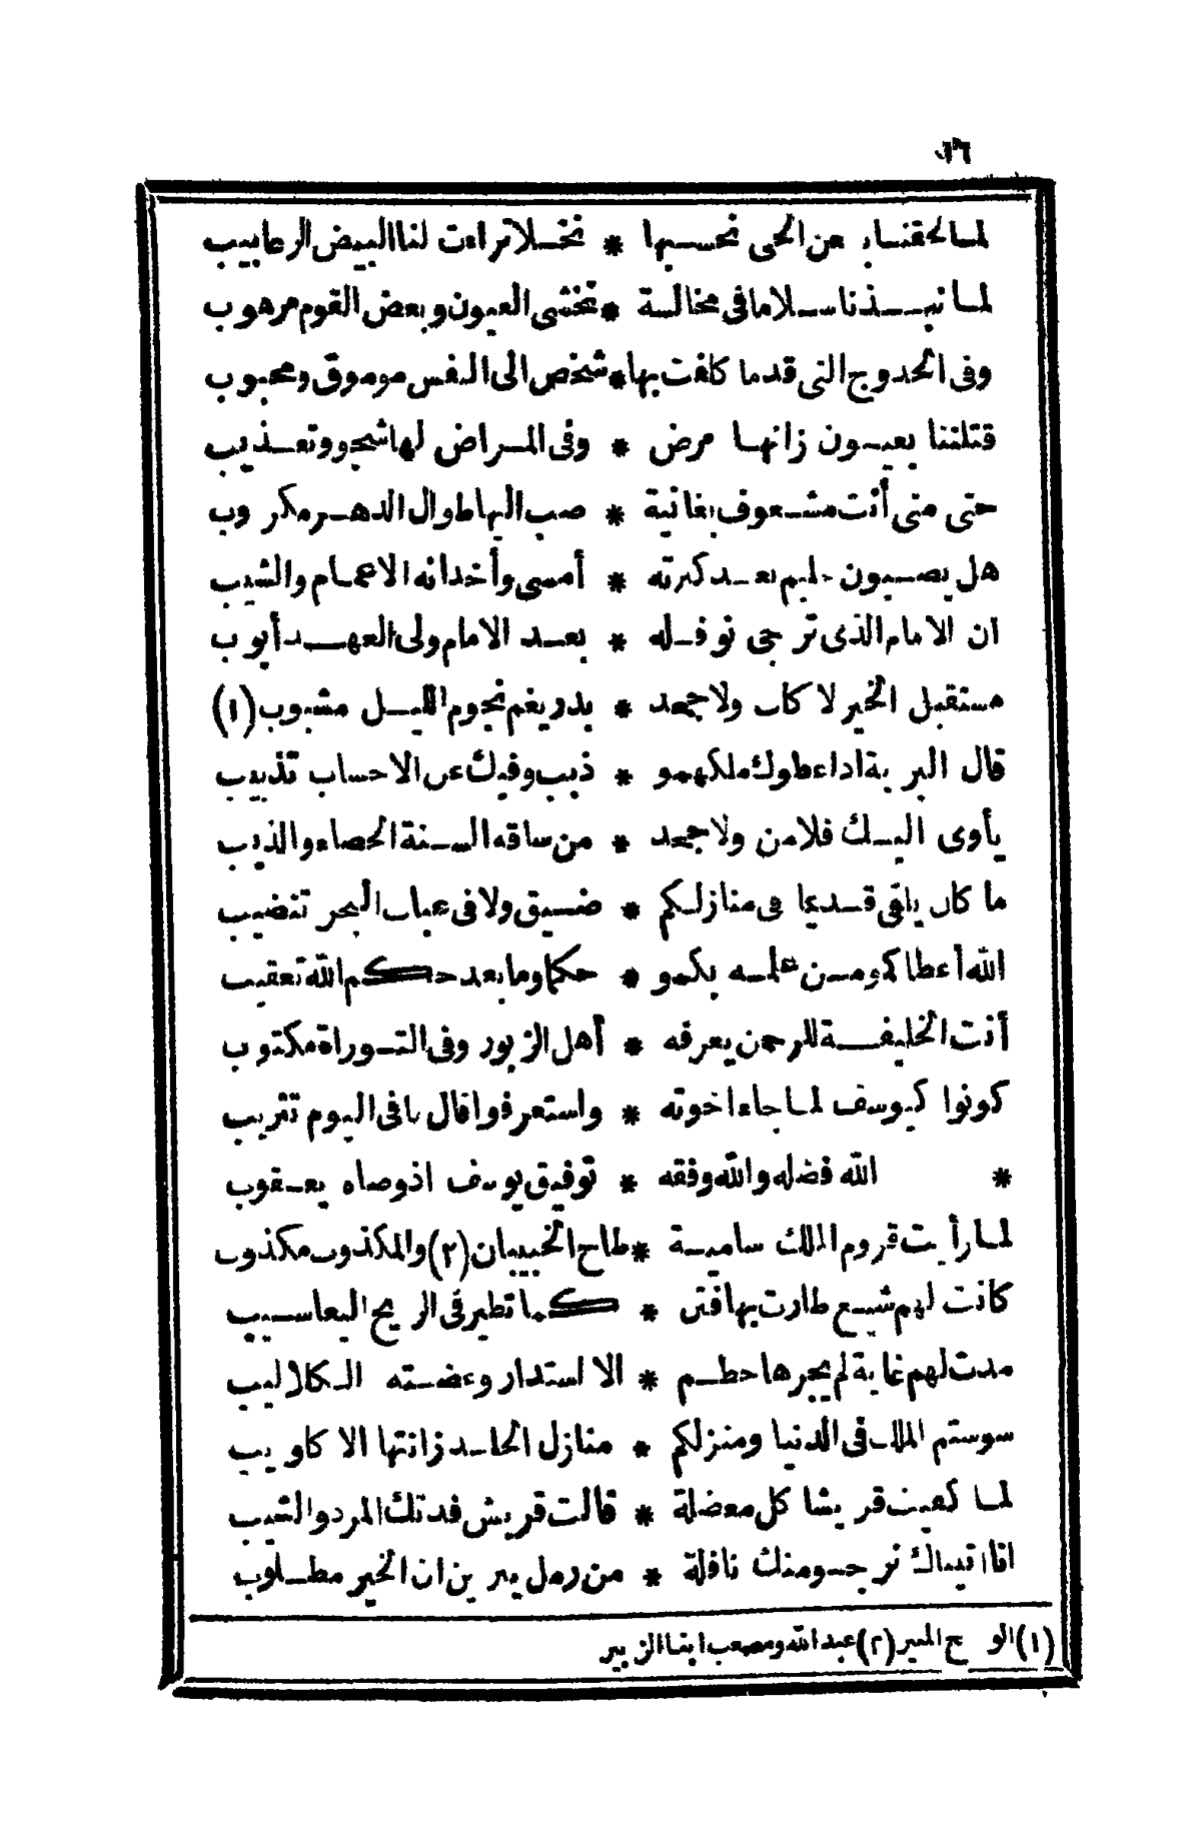 ١٦
لما لحقنا بظعن الحى نحسبها * نخلا تراءت لنا البيض الرعابيب
لما نبذنا سلاما فى مخالسة * نخشى العيون وبعض القوم مرهوب
وفى الحدوج التى قدما كلفت بها * شخص الى النفس موموق ومحبوب
قتلننا بعيون زانها مرض * وفى المراض لها شجو وتعذيب
حتى متى أنت مشعوف بغانية * صب اليها طوال الدهر مكروب
هل يصبون حليم بعد كبرته * أمسى وأخدانه الاعمام والشيب
ان الامام الذى ترجى نوفله * بعد الامام ولى العهد أيوب
مستقبل الخير لا كاب ولا جحد * بدر يغم نجوم الليل مشبوب (١)
قال البرية اذ اعطوك ملكهمو * ذبب وفيك عن الاحساب تذبيب
يأوى اليك فلا من ولا جحد * من ساقه السنة الحصاء والذيب
ما كان يلقى قديما فى منازلكم * ضيق ولا فى عباب البحر تنضيب
الله أعطاكمو من علمه بكمو * حكما وما بعد حكم الله تعقيب
أنت الخليفة للرحمن يعرفه * أهل الزبور وفى التوراة مكتوب
كونوا كيوسف لما جاء اخوته * واستعرفوا قال ما فى اليوم تثريب
* الله فضله والله وفقه * توفيق يوسف اذ وصاه يعقوب
لما رأيت قروم الملك سامية * طاح الخبيبان (٢) والمكذوب مكذوب
كانت لهم شيع طارت بها فتن * كما تطير فى الريح اليعاسيب
مدت لهم غاية لم يجرها حطم * الا استدار وعضته الكلاليب
سوستم الملك فى الدنيا ومنزلكم * منازل الخلد زانتها الاكاويب
لما كفيت قريشا كل معضلة * قالت قريش فدتك المرد والشيب
انا اتيناك نرجو منك نافلة * من رمل يبرين ان الخير مطلوب
(١) الوهج المنير (٢) عبد الله ومصعب ابنا الزبير